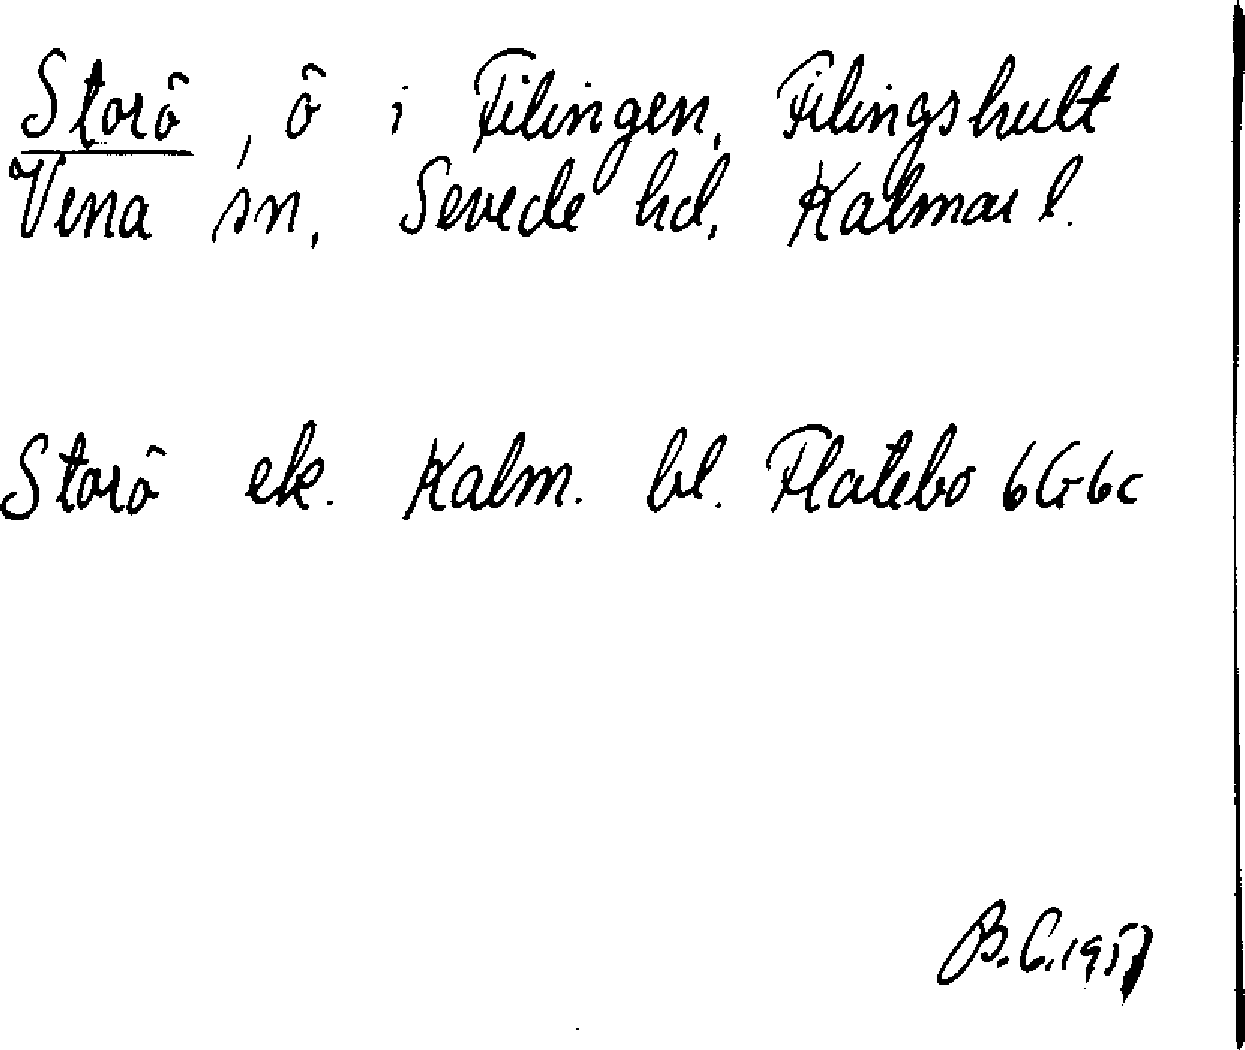 Storö, ö i Filingen, Filingshult
Vena sn, Sevede hd, Kalmar l.
Storö ek. Kalm. bl. Flatebo 6G6c
B.G.1957